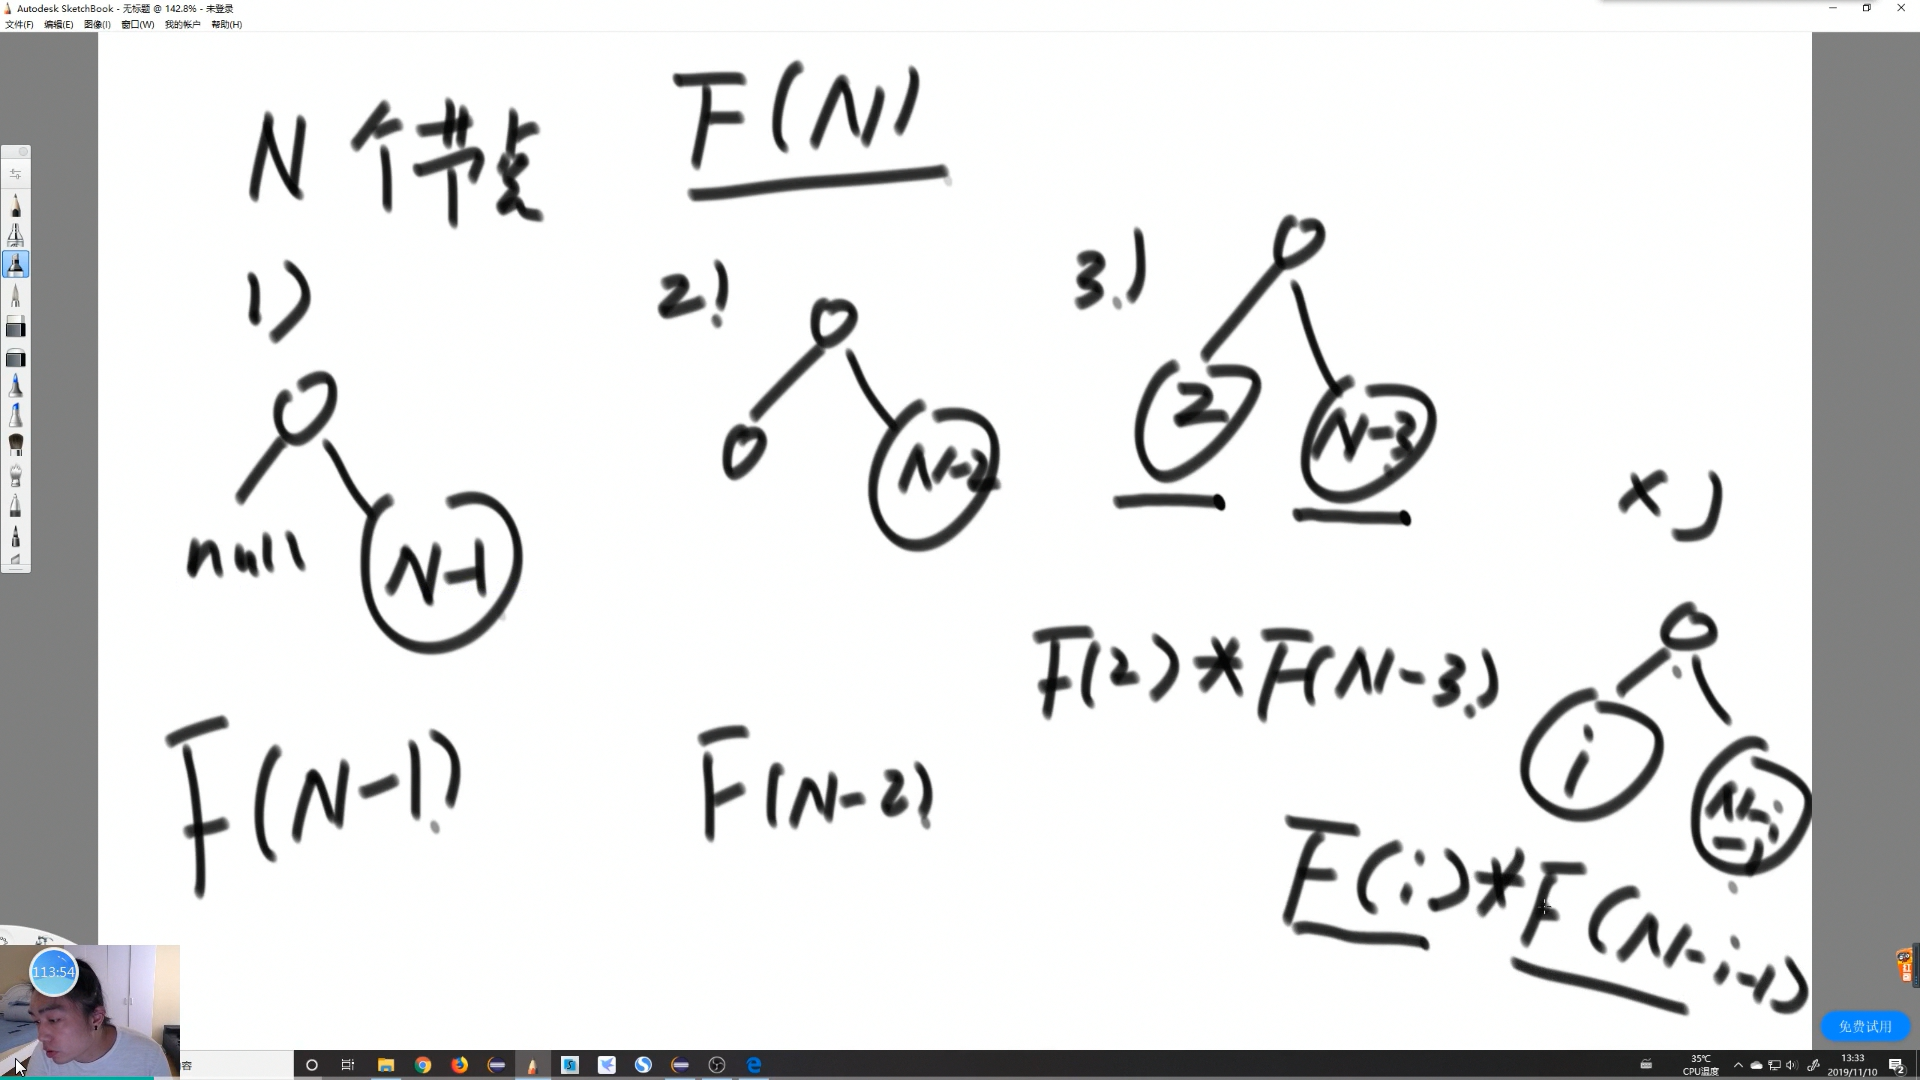 Autodesk SketchBook - 无标题 @ 142.8% - 未登录
文件(F) 编辑(E) 图像(I) 窗口(W) 我的帐户 帮助(H)
N个节点 F(N)
1) 2) 3)
null N-1
N-2
2 N-3
x)
i N-i-1
F(N-1) F(N-2) F(2)*F(N-3)
F(i)*F(N-i-1)
113:54
免费试用
容
35℃
CPU温度
13:33
2019/11/10
2